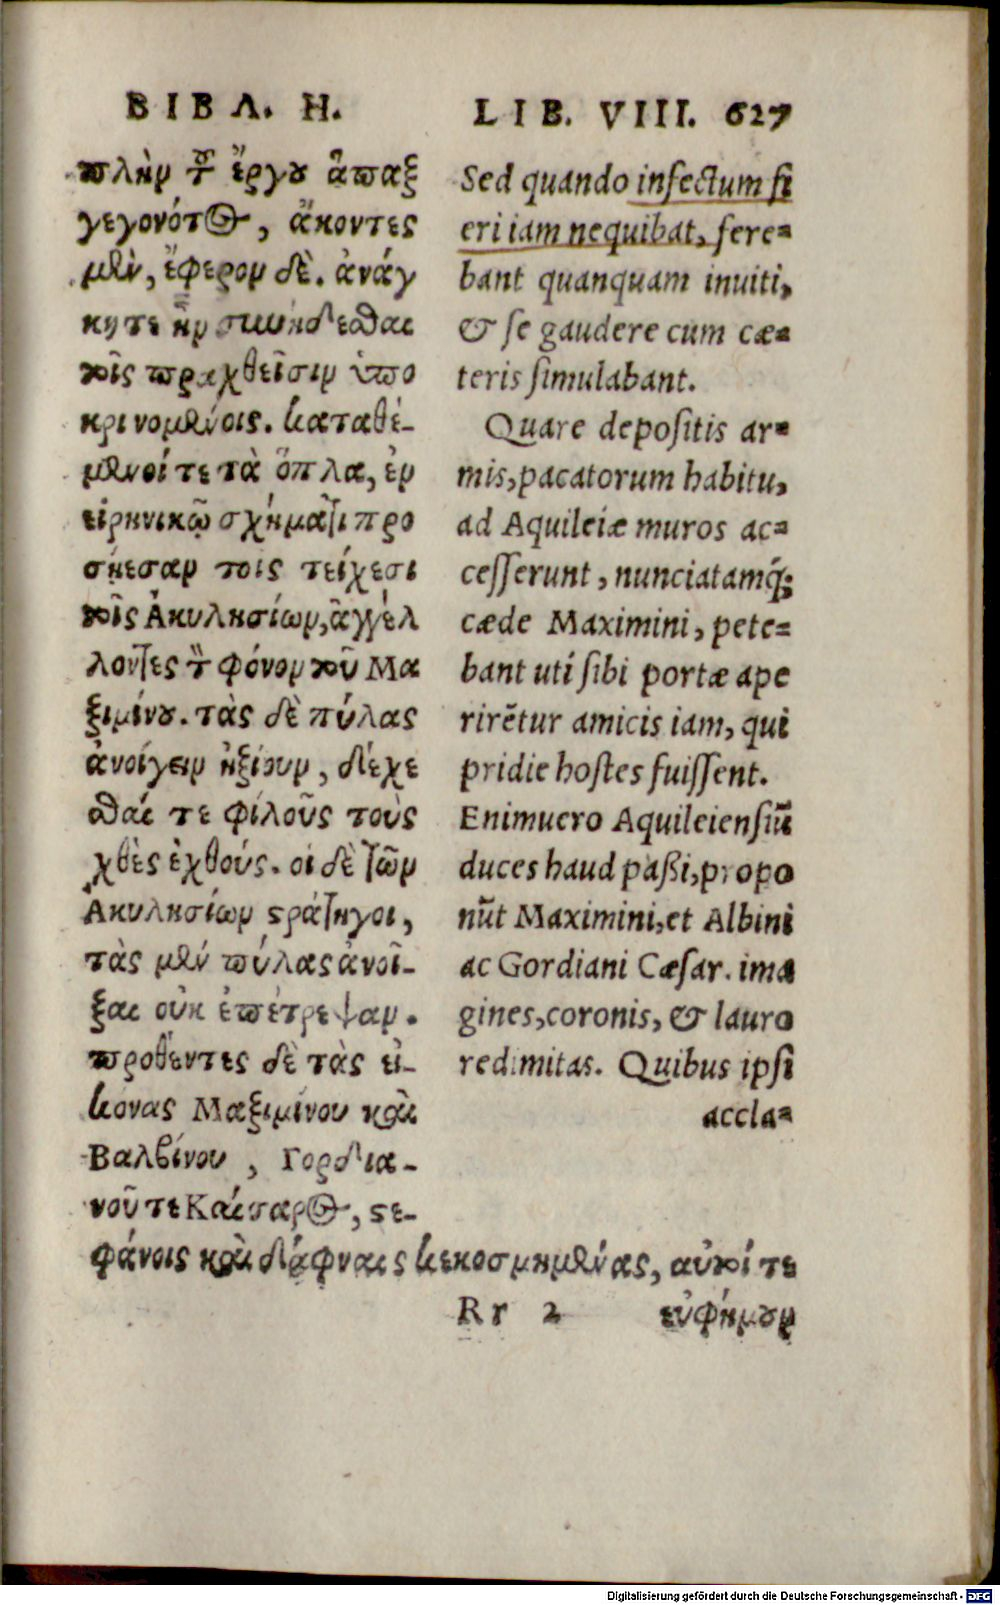 ΒΙΒΛ. Η.
πλὴν τοῦ ἔργου ἅπαξ
γεγονότος, ἄκοντες
μὲν, ἔφερον δὲ. ἀνάγ
κη τε ἦν συνήδεσθαι
τοῖς πραχθεῖσιν ὑπο
κρινομένοις. καταθέ-
μενοί τε τὰ ὅπλα, ἐν
εἰρηνικῷ σχήματι προ
σῄεσαν τοις τείχεσι
τοῖς Ἀκυλησίων, ἀγγέλ
λοντες τὸν φόνον τοῦ Μα
ξιμίνου. τὰς δὲ πύλας
ἀνοίγειν ἠξίουν, δέχε
σθαί τε φίλοῦς τοὺς
χθὲς ἐχθούς. οἱ δὲ τῶν
Ἀκυλησίων στράτηγοι,
τὰς μὲν πύλας ἀνοῖ-
ξαι οὐκ ἐπέτρεψαν.
προθέντες δὲ τὰς εἰ-
κόνας Μαξιμίνου καὶ
Βαλβίνου, Γορδια-
νοῦ τε Καίσαρος, στε-
φάνοις καὶ δάφναις κεκοσμημένας, αὐτοί τε
εὐφήμουν
LIB. VIII. 627
Sed quando infectum fi
eri iam nequibat, fere-
bant quanquam inuiti,
& se gaudere cum cæ-
teris simulabant.
Quare depositis ar-
mis, pacatorum habitu,
ad Aquileiæ muros ac-
cesserunt, nunciatamq́;
cæde Maximini, pete-
bant uti sibi portæ ape
rirẽtur amicis iam, qui
pridie hostes fuissent.
Enimuero Aquileiensiũ
duces haud paßi, propo
nũt Maximini, et Albini
ac Gordiani Cæsar. ima
gines, coronis, & lauro
redimitas. Quibus ipsi
accla-
Rr 2
Digitalisierung gefördert durch die Deutsche Forschungsgemeinschaft - DFG